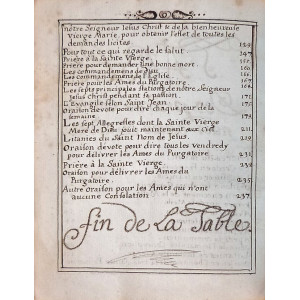 nôtre Seigneur Iesus Christ & de la bienheureuse
Vierge Marie, pour obtenir l'effet de toutes les
demandes licites
Pour tout ce qui regarde le salut
Prière à la Sainte Vierge.
Prière pour demander une bonne mort.
Les commandemens de Dieu
Les commandemens de l'Eglise
Prière pour les Ames du Purgatoire.
Les septs principales stations de nôtre Seigneur
Iesus Christ pendant sa passion
L'Evangile selon Saint Jean
Oraison dévote pour dire chaque jour de la
semaine
Les sept Allegresses dont la Sainte Vierge
Mere de Dieu jouit maintenant aux Ciel
Litanies du Saint Nom de Jesus. 221.
Oraison dévote pour dire tous les vendredy
pour délivrer les Ames du Purgatoire
Prière à la Sainte Vierge.
Oraison pour délivrer les Ames du
Purgatoire. 235.
Autre Oraison pour les Ames qui n'ont
aucune Consolation. 237.
fin de la Table